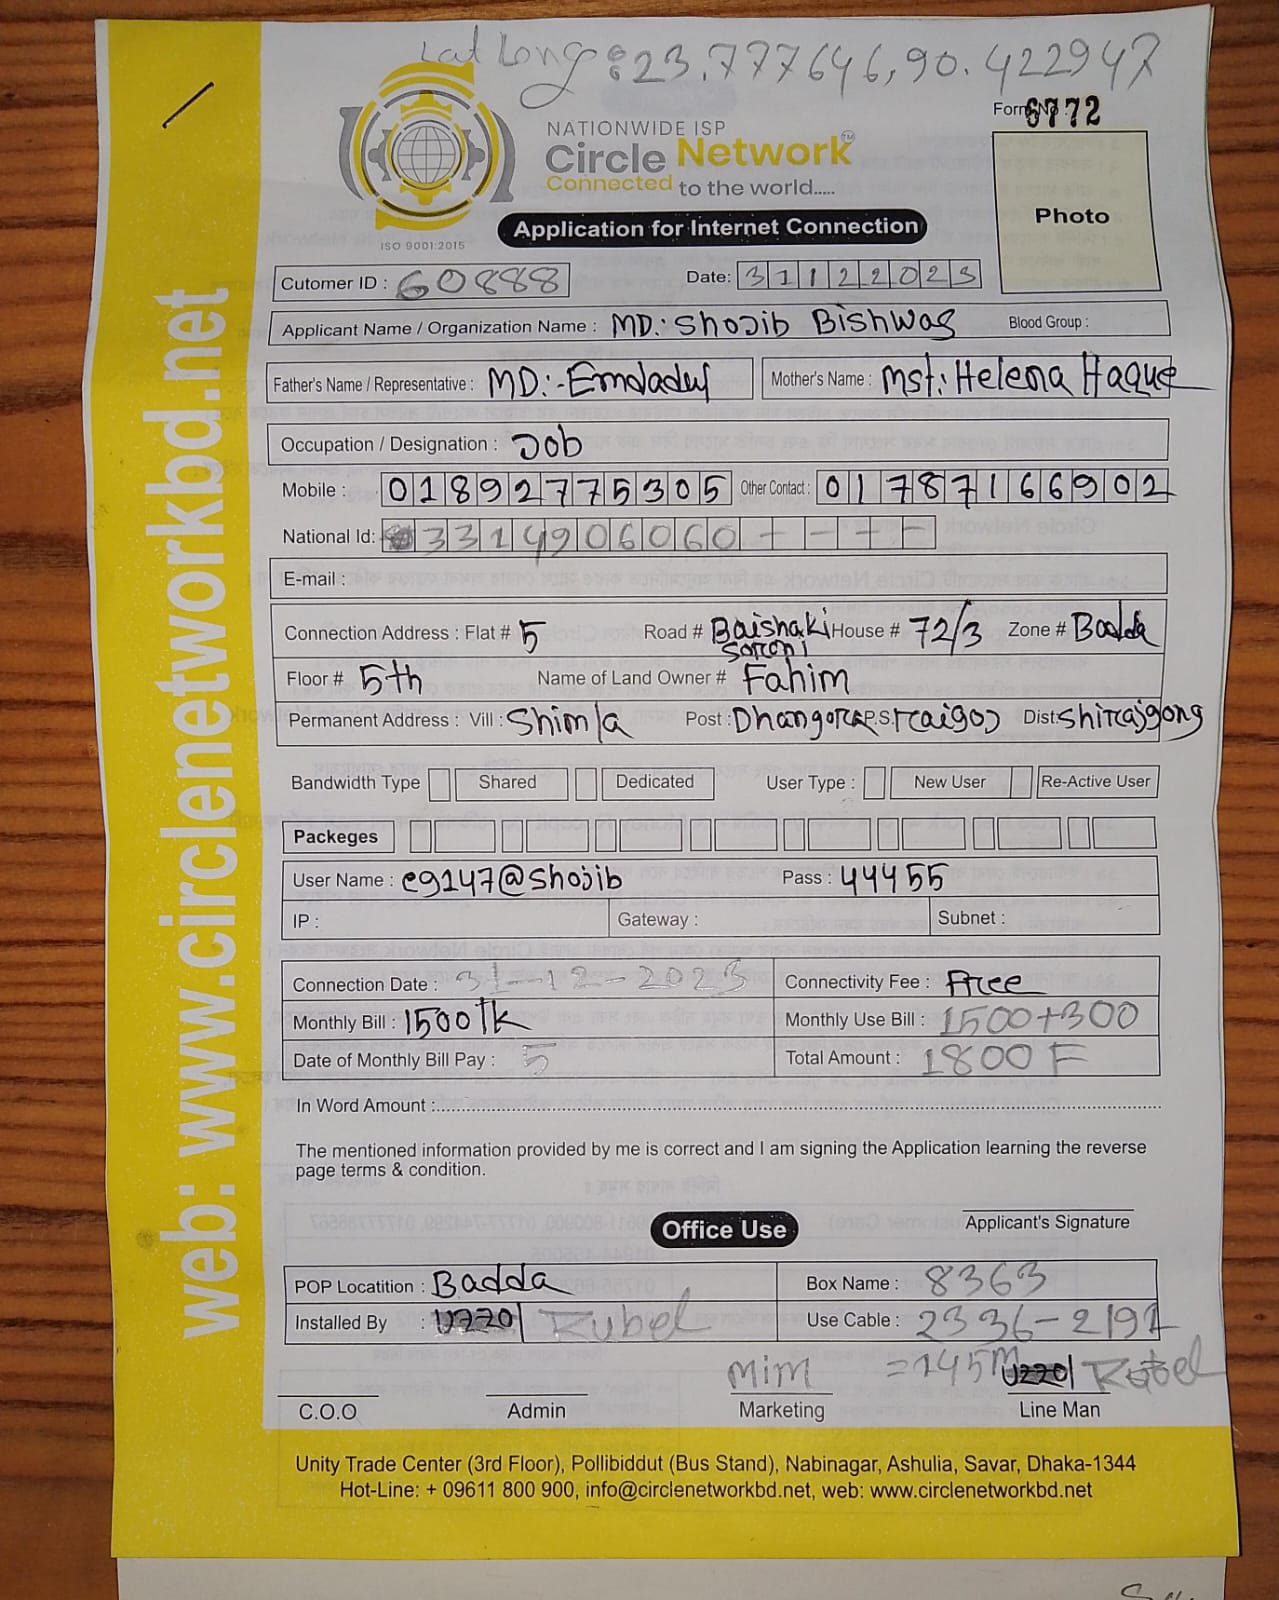 Lat Long: 23.777646,90.422947
Form No : 6772
NATIONWIDE ISP
Circle Network™
Connected to the world.....
ISO 9001:2015
Application for Internet Connection
Photo
Cutomer ID : 60888 Date: 31122023
Applicant Name / Organization Name : MD: Shojib Bishwas Blood Group :
Father's Name / Representative : MD:-Emdadul Mother's Name : Mst: Helena Haque
Occupation / Designation : Job
Mobile : 01892775305 Other Contact : 01787166902
National Id: 3314906060 - - - -
E-mail :
Connection Address : Flat # 5 Road # Baishaki Saroni House # 72/3 Zone # Badda
Floor # 5th Name of Land Owner # Fahim
Permanent Address : Vill : Shimla Post : Dhangora P.S. raigoj Dist: Shirajgong
Bandwidth Type Shared Dedicated User Type : New User Re-Active User
Packeges
User Name : eg147@shojib Pass : 44455
IP : Gateway : Subnet :
Connection Date : 31-12-2023 Connectivity Fee : Free
Monthly Bill : 1500Tk Monthly Use Bill : 1500+300
Date of Monthly Bill Pay : 5 Total Amount : 1800 F
In Word Amount :
The mentioned information provided by me is correct and I am signing the Application learning the reverse
page terms & condition.
Applicant's Signature
Office Use
POP Locatition : Badda Box Name : 8363
Installed By : Rubel Use Cable : 2336-2191
Mim =145M Rubel
C.O.O Admin Marketing Line Man
Unity Trade Center (3rd Floor), Pollibiddut (Bus Stand), Nabinagar, Ashulia, Savar, Dhaka-1344
Hot-Line: + 09611 800 900, info@circlenetworkbd.net, web: www.circlenetworkbd.net
web: www.circlenetworkbd.net